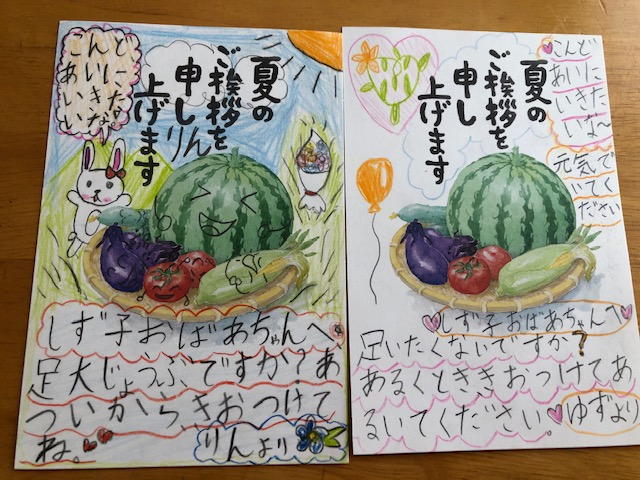 こんど
あいに
いきた
いな
夏の
ご挨拶を
申し
上げます
りん
しず子おばあちゃんへ
足大じょうぶですか?あ
ついから、きおつけて
ね。
りんより
こんど
あいに
いきた
いな〜
元気で
いてく
ださい
夏の
ご挨拶を
申し
上げます
しず子おばあちゃんへ
足いたくないですか?
あるくとききおつけてあ
るいてください。
ゆずより